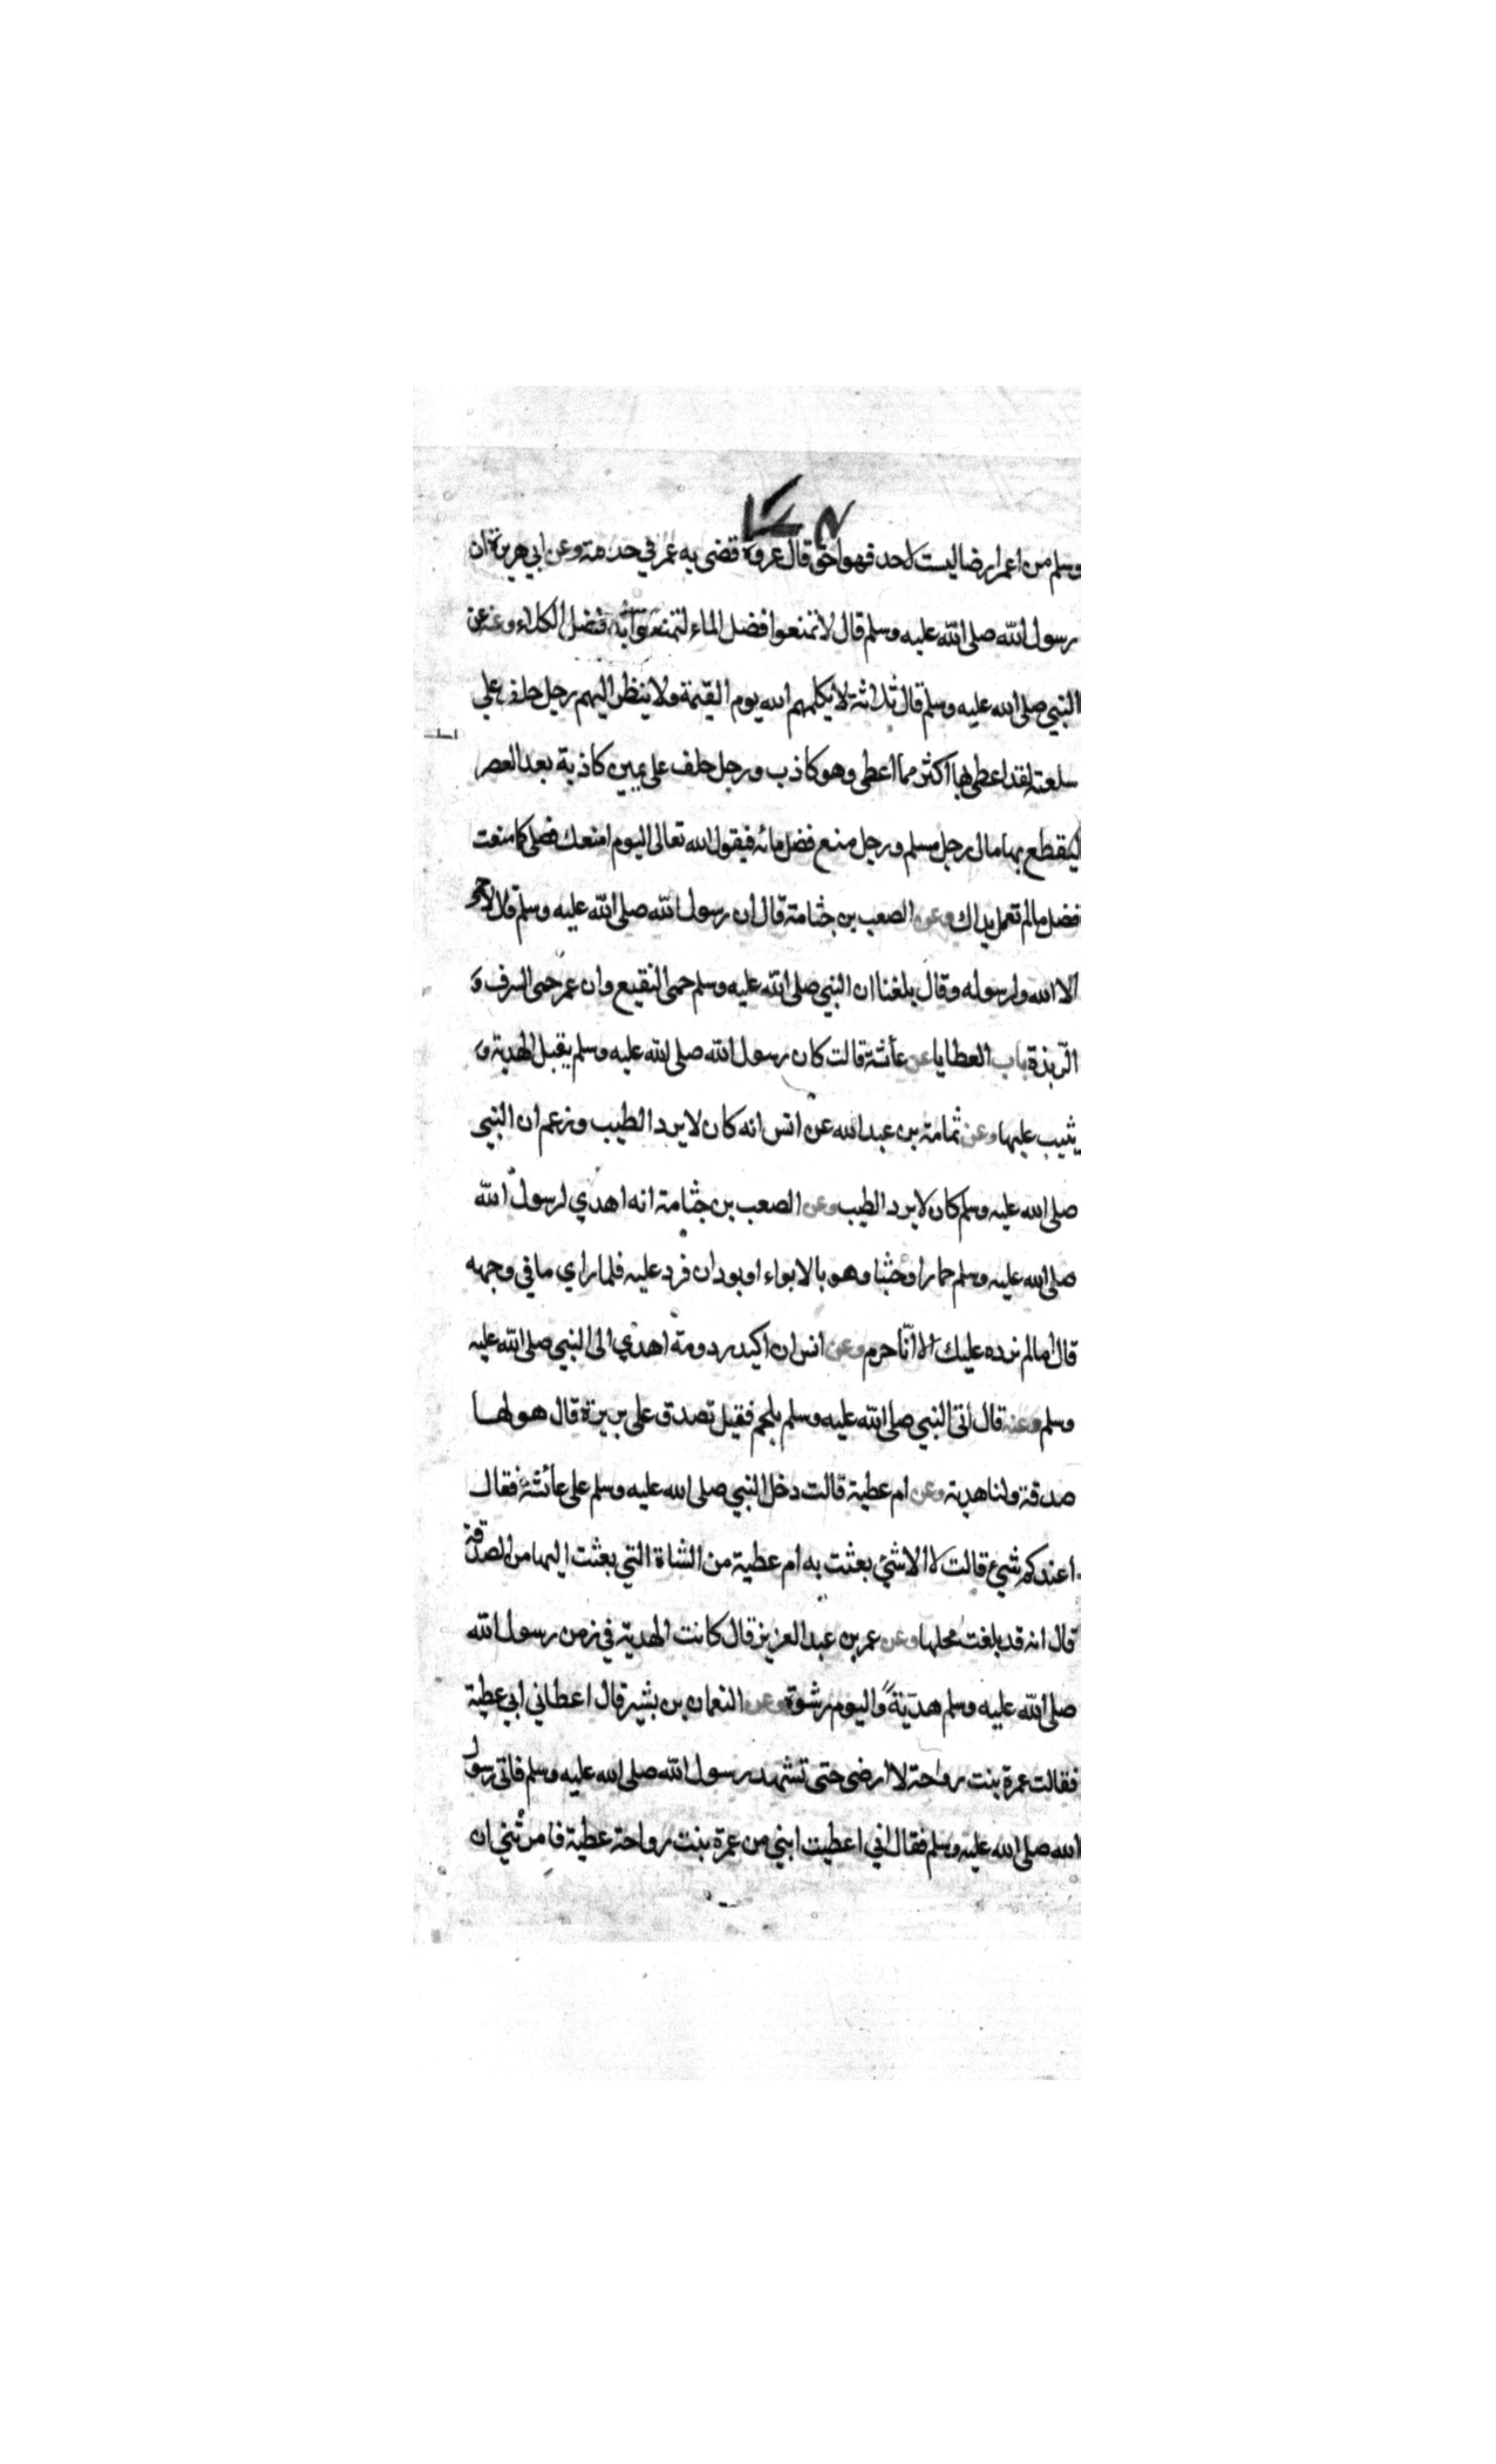 وسلم من اعمر ارضا ليست لاحد فهو احق قال عروة قضى به عمر في خدمته وعن ابي هريرة ان
رسول الله صلى الله عليه وسلم قال لا تمنعوا فضل الماء لتمنعوا به فضل الكلاء وعنه عن
النبي صلى الله عليه وسلم قال ثلاثة لا يكلمهم الله يوم القيمة ولا ينظر اليهم رجل حلف على
سلعته لقد اعطى بها اكثر مما اعطى وهو كاذب ورجل حلف على يمين كاذبة بعد العصر
ليقطع بها مال رجل مسلم ورجل منع فضل مائه فيقول الله تعالى اليوم امنعك فضلي كما منعت
فضل مالم تعمل يداك وعن الصعب بن جثامة قال ان رسول الله صلى الله عليه وسلم قال لا حمى
الا الله ولرسوله وقال بلغنا ان النبي صلى الله عليه وسلم حمى النقيع وان عمر حمى السرف و
الربذة باب العطايا عن عائشة قالت كان رسول الله صلى الله عليه وسلم يقبل الهدية و
يثيب عليها وعن ثمامة بن عبد الله عن انس انه كان لا يرد الطيب وزعم ان النبي
صلى الله عليه وسلم كان لا يرد الطيب وعن الصعب بن جثامة انه اهدي لرسول الله
صلى الله عليه وسلم حمارا وحشيا وهو بالابواء او بودان فرد عليه فلما راي ما في وجهه
قال اما لم نرده عليك الا انا حرم وعن انس ان اكيدر دومة اهدي الى النبي صلى الله عليه
وسلم وعنه قال اتى النبي صلى الله عليه وسلم بلحم فقيل تصدق على بريرة قال هو لها
صدقة ولنا هدية وعن ام عطية قالت دخل النبي صلى الله عليه وسلم على عائشة فقال
اعندكم شيء قالت لا الا شيء بعثت به ام عطية من الشاة التي بعثت اليها من الصدقة
قال انه قد بلغت محلها وعن عمر بن عبد العزيز قال كانت الهدية في زمن رسول الله
صلى الله عليه وسلم هدية واليوم رشوة وعن النعمان بن بشير قال اعطاني ابي عطية
فقالت عمرة بنت رواحة لا ارضى حتى تشهد رسول الله صلى الله عليه وسلم فاتى رسول
الله صلى الله عليه وسلم فقال اني اعطيت ابني من عمرة بنت رواحة عطية فامرتني ان